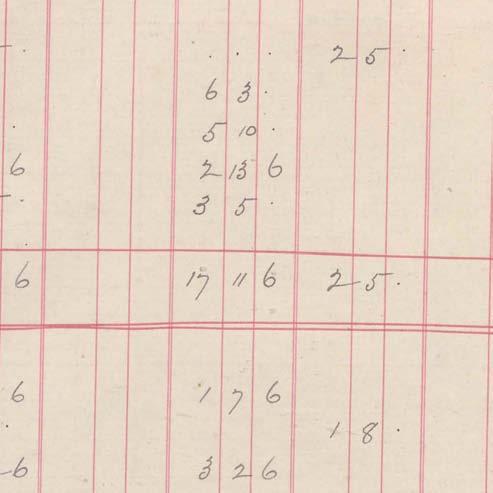 . . . 2 5 .
6 3 .
5 10 .
6 2 13 6
3 5 .
6 17 11 6 2 5 .
6 1 7 6
. 1 8 .
6 3 2 6